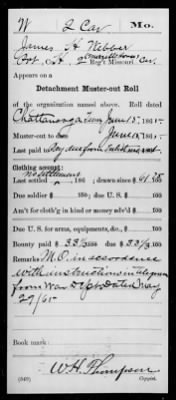 W 2 Cav Mo.
James H Webber
Pvt, Co. H, 2 Reg't Missouri Cav.
Appears on a
Detachment Muster-out Roll
of the organization named above. Roll dated
Chattanooga Tenn June 15, 1865.
Muster-out to date June 15, 1865.
Last paid to Pay due from Enlistment, 186
Clothing account:
no settlement
Last settled , 186 ; drawn since $ 61.75 100
Due soldier $ 100; due U. S. $ 100
Am't for cloth'g in kind or money adv'd $ 100
Due U. S. for arms, equipments, &c., $ 100
Bounty paid $ 33 100; due $ 33 100
Remarks: M.O. in accordance
with instructions in telegram
from War Dept. dated May
29/65
Book mark:
W.H. Thompson
(349) Copyist.